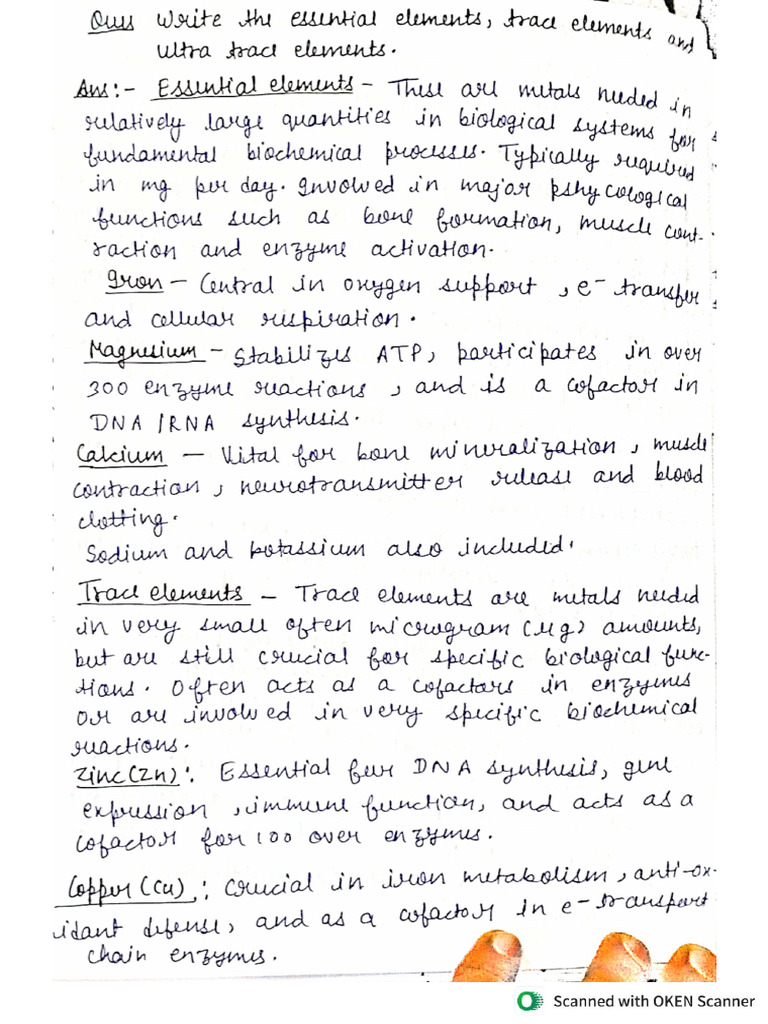 Ques Write the essential elements, trace elements and
ultra trace elements.
Ans:- Essential elements - These are metals needed in
relatively large quantities in biological systems for
fundamental biochemical processes. Typically required
in mg per day. Involved in major pshycological
functions such as bone formation, muscle cont-
raction and enzyme activation.
Iron - Central in oxygen support, e- transfer
and cellular respiration.
Magnesium - Stabilizes ATP, participates in over
300 enzyme reactions, and is a cofactor in
DNA/RNA synthesis.
Calcium - Vital for bone mineralization, muscle
contraction, neurotransmitter release and blood
clotting.
Sodium and potassium also included.
Trace elements - Trace elements are metals needed
in very small often microgram (μg) amounts,
but are still crucial for specific biological func-
tions. Often acts as a cofactors in enzymes
or are involved in very specific biochemical
reactions.
Zinc(Zn): Essential for DNA synthesis, gene
expression, immune function, and acts as a
cofactor for 100 over enzymes.
Copper(Cu): Crucial in iron metabolism, anti-ox-
idant defense, and as a cofactor in e- transport
chain enzymes.
Scanned with OKEN Scanner